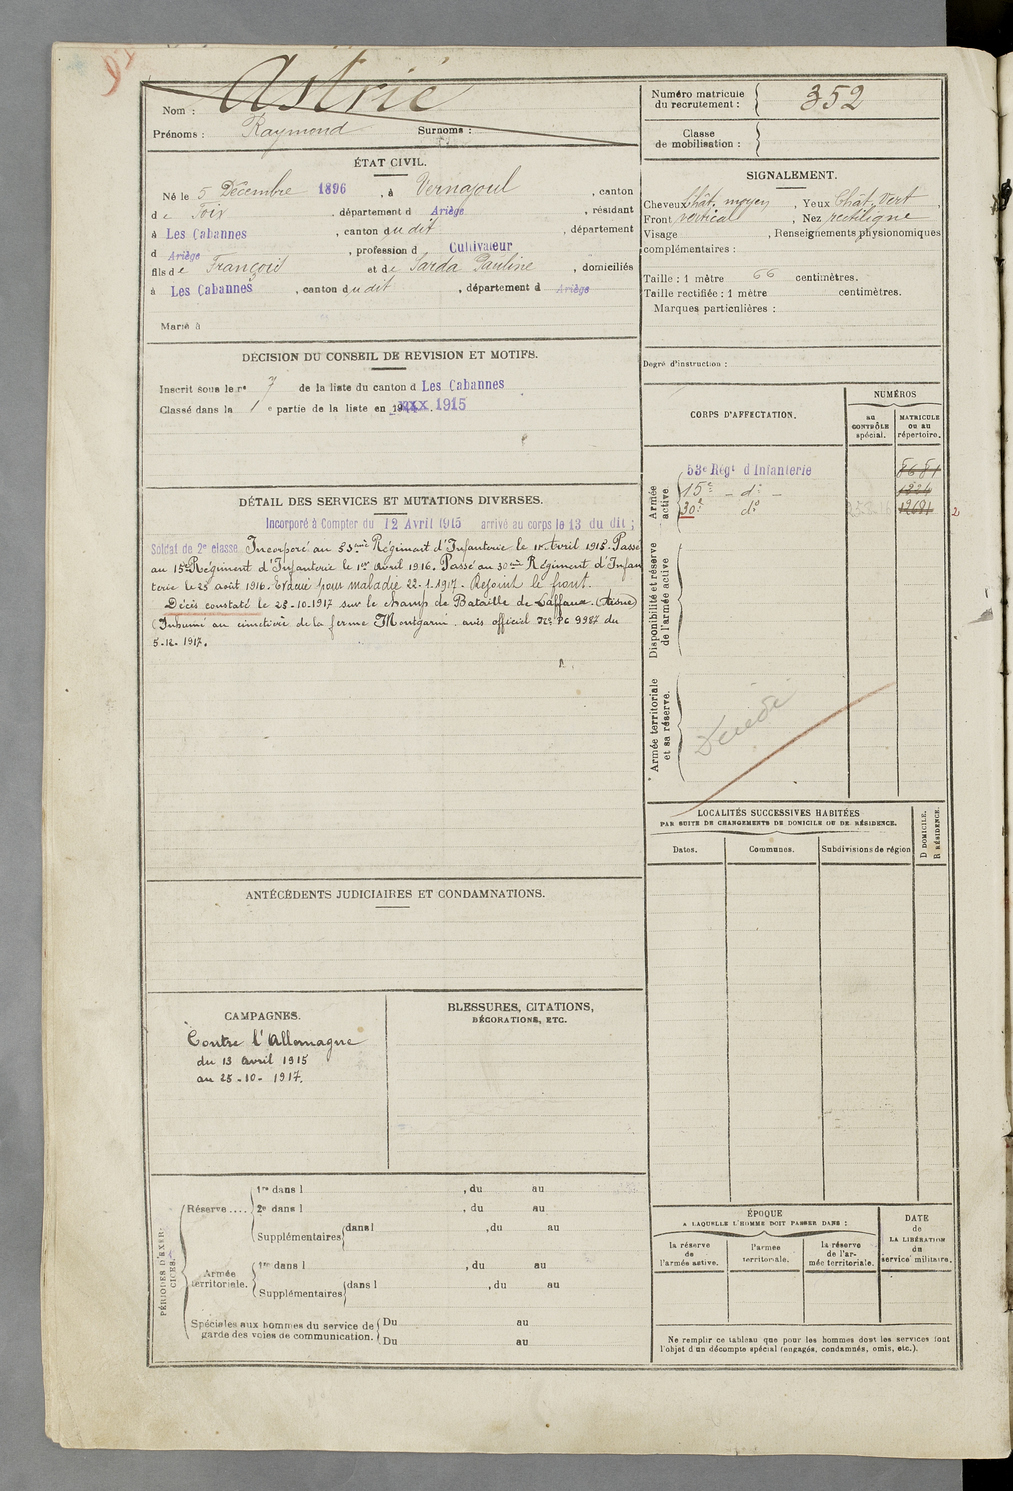 Nom : Astrié
Prénoms : Raymond Surnoms :
Numéro matricule du recrutement : 352
Classe de mobilisation :
ÉTAT CIVIL.
Né le 5 Décembre 1896, à Vernajoul, canton
de Foix, département d Ariège, résidant
à Les Cabannes, canton dudit, département
d Ariège, profession d Cultivateur
fils de François et de Sarda Pauline, domiciliés
à Les Cabannes, canton dudit, département d Ariège
Marié à
SIGNALEMENT.
Cheveux Chât. moyen, Yeux Chât. Vert,
Front vertical, Nez rectiligne
Visage , Renseignements physionomiques
complémentaires :
Taille : 1 mètre 66 centimètres.
Taille rectifiée : 1 mètre centimètres.
Marques particulières :
Degré d'instruction :
DÉCISION DU CONSEIL DE REVISION ET MOTIFS.
Inscrit sous le n° 7 de la liste du canton d Les Cabannes
Classé dans la 1e partie de la liste en 1915
CORPS D'AFFECTATION.
NUMÉROS
au CONTRÔLE spécial.
MATRICULE ou au répertoire.
Armée active.
53e Régt d'Infanterie 8681
15e - do - 1224
30e do 12681
2
Disponibilité et réserve de l'armée active.
Armée territoriale et sa réserve.
Décédé
DÉTAIL DES SERVICES ET MUTATIONS DIVERSES.
Incorporé à Compter du 12 Avril 1915 arrivé au corps le 13 du dit ;
Soldat de 2e classe. Incorporé au 53ème Régiment d'Infanterie le 12 Avril 1915. Passé
au 15e Régiment d'Infanterie le 1er Avril 1916. Passé au 30ème Régiment d'Infan
terie le 25 août 1916. Evacué pour maladie 22-1-1917. Rejoint le front.
Décès constaté le 25-10-1917 sur le champ de Bataille de Laffaux. (Aisne)
(Inhumé au cimetière de la ferme Montgarni. avis officiel No PC 9987 du
5-12-1917.
ANTÉCÉDENTS JUDICIAIRES ET CONDAMNATIONS.
LOCALITÉS SUCCESSIVES HABITÉES
PAR SUITE DE CHANGEMENTS DE DOMICILE OU DE RÉSIDENCE.
Dates.
Communes.
Subdivisions de région
D DOMICILE.
R RÉSIDENCE.
CAMPAGNES.
Contre l'Allemagne
du 13 Avril 1915
au 25-10-1917.
BLESSURES, CITATIONS,
DÉCORATIONS, ETC.
PÉRIODES D'EXERCICES.
Réserve ....
1re dans l , du au
2e dans l , du au
Supplémentaires dans l , du au
Armée territoriale.
1re dans l , du au
Supplémentaires dans l , du au
Spéciales aux hommes du service de garde des voies de communication.
Du au
Du au
ÉPOQUE
A LAQUELLE L'HOMME DOIT PASSER DANS :
la réserve de l'armée active.
l'armée territoriale.
la réserve de l'armée territoriale.
DATE de LA LIBÉRATION du service militaire.
Ne remplir ce tableau que pour les hommes dont les services font
l'objet d'un décompte spécial (engagés, condamnés, omis, etc.).